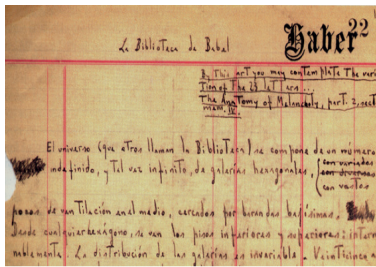 La Biblioteca de Babel
Haber 22
By this art you may contemplate the vari
tion of the 23 letters...
The Anatomy of Melancholy, part. 2, sect
mem. IV.
El universo (que otros llaman la Biblioteca) se compone de un número
indefinido, y tal vez infinito, de galerías hexagonales,
con variados
con diversos
con vastos
pozos de ventilación en el medio, cercados por barandas bajísimas.
Desde cualquier hexágono, se ven los pisos inferiores y superiores: inter
nablemente. La distribución de las galerías es invariable. Veinticinco a